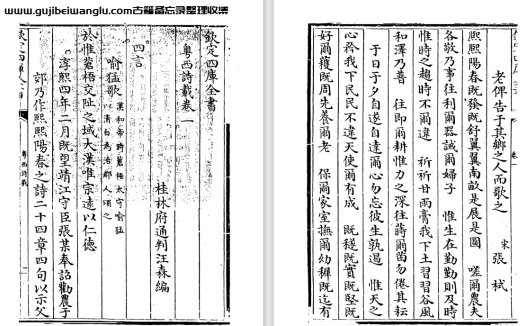 www.gujibeiwanglu.com古籍备忘录整理收集
欽定四庫全書
粵西詩載卷一
桂林府通判汪森編
四言
喻猛歌 漢和帝時蒼梧太守喻猛
以清白為治郡人頌之
於惟蒼梧交阯之域大漢唯宗遠以仁德
淳熙四年二月既望靖江守臣張某奉詔勸農于
郊乃作熙熙陽春之詩二十四章四句以示父
粵西詩載
老俾告于其鄉之人而歌之
宋 張栻
熙熙陽春既發既舒翼翼南畝是展是圖 嗟爾農夫
各敬乃事往利爾器誡爾婦子 惟生在勤勤則及時
惟時之趨時不爾違 祈祈甘雨膏我下土習習谷風
和澤乃普 往即爾耕惟力之深往蒔爾苗勿倦其耘
于日于夕自遂自達爾心勿忘彼生孰遏 惟天之
心矜我下民民不違天使爾有成 既穟既實既堅既
好爾穫既周先養爾老 保爾家室撫爾幼穉既迄有